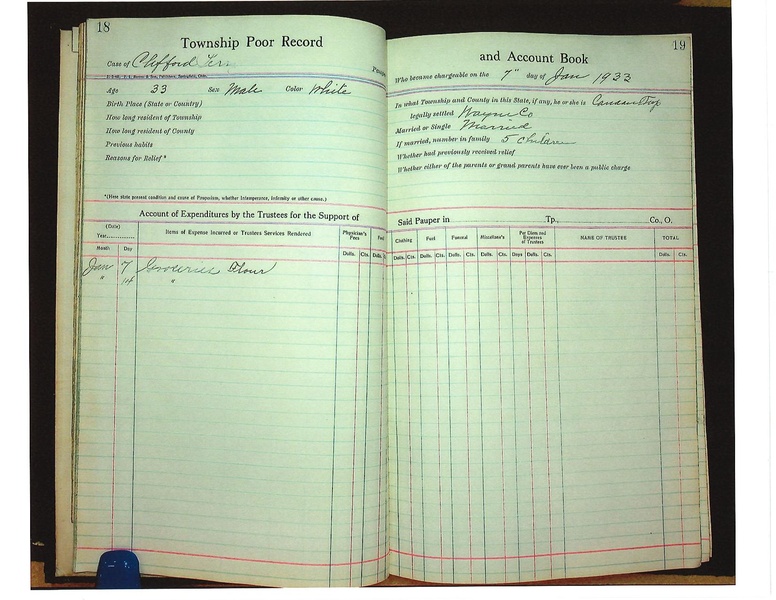 18
Township Poor Record
Case of Clifford
Age 33 Sex Male Color White
Birth Place (State or Country)
How long resident of Township
How long resident of County
Previous habits
Reasons for Relief*
*(Here state present condition and cause of Pauperism, whether Intemperance, Infirmity or other cause.)
Account of Expenditures by the Trustees for the Support of
(Date)
Year
Month Day
Items of Expense Incurred or Trustees Services Rendered
Physician's Fees
Dolls. Cts. Dolls.
Jan 7 Groceries Flour
" 14 "
19
and Account Book
Who became chargeable on the 7" day of Jan 1933
In what Township and County in this State, if any, he or she is
legally settled Wayne Co
Married or Single Married
If married, number in family 5 children
Whether had previously received relief
Whether either of the parents or grand parents have ever been a public charge
Said Pauper in Tp., Co., O.
Clothing Fuel Funeral Miscellan's Per Diem and Expenses of Trustees NAME OF TRUSTEE TOTAL
Dolls. Cts. Dolls. Cts. Dolls. Cts. Dolls. Cts. Days Dolls. Cts. Dolls. Cts.